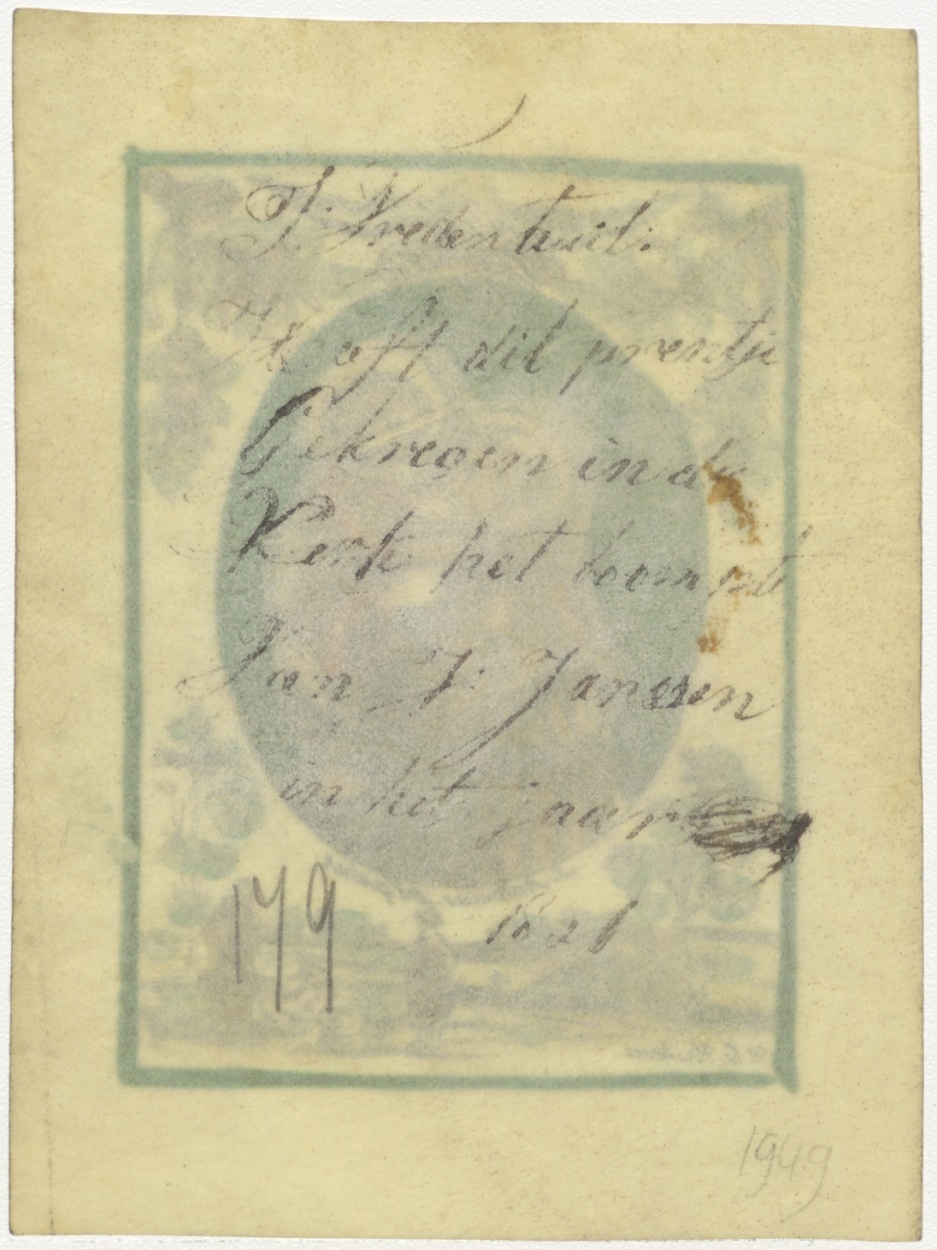 J: Vredentuil:
Ik eff dit prentje
Gekregen in de
Kerk het
Jan J: Janssen
in het jaar
179
1821
1949